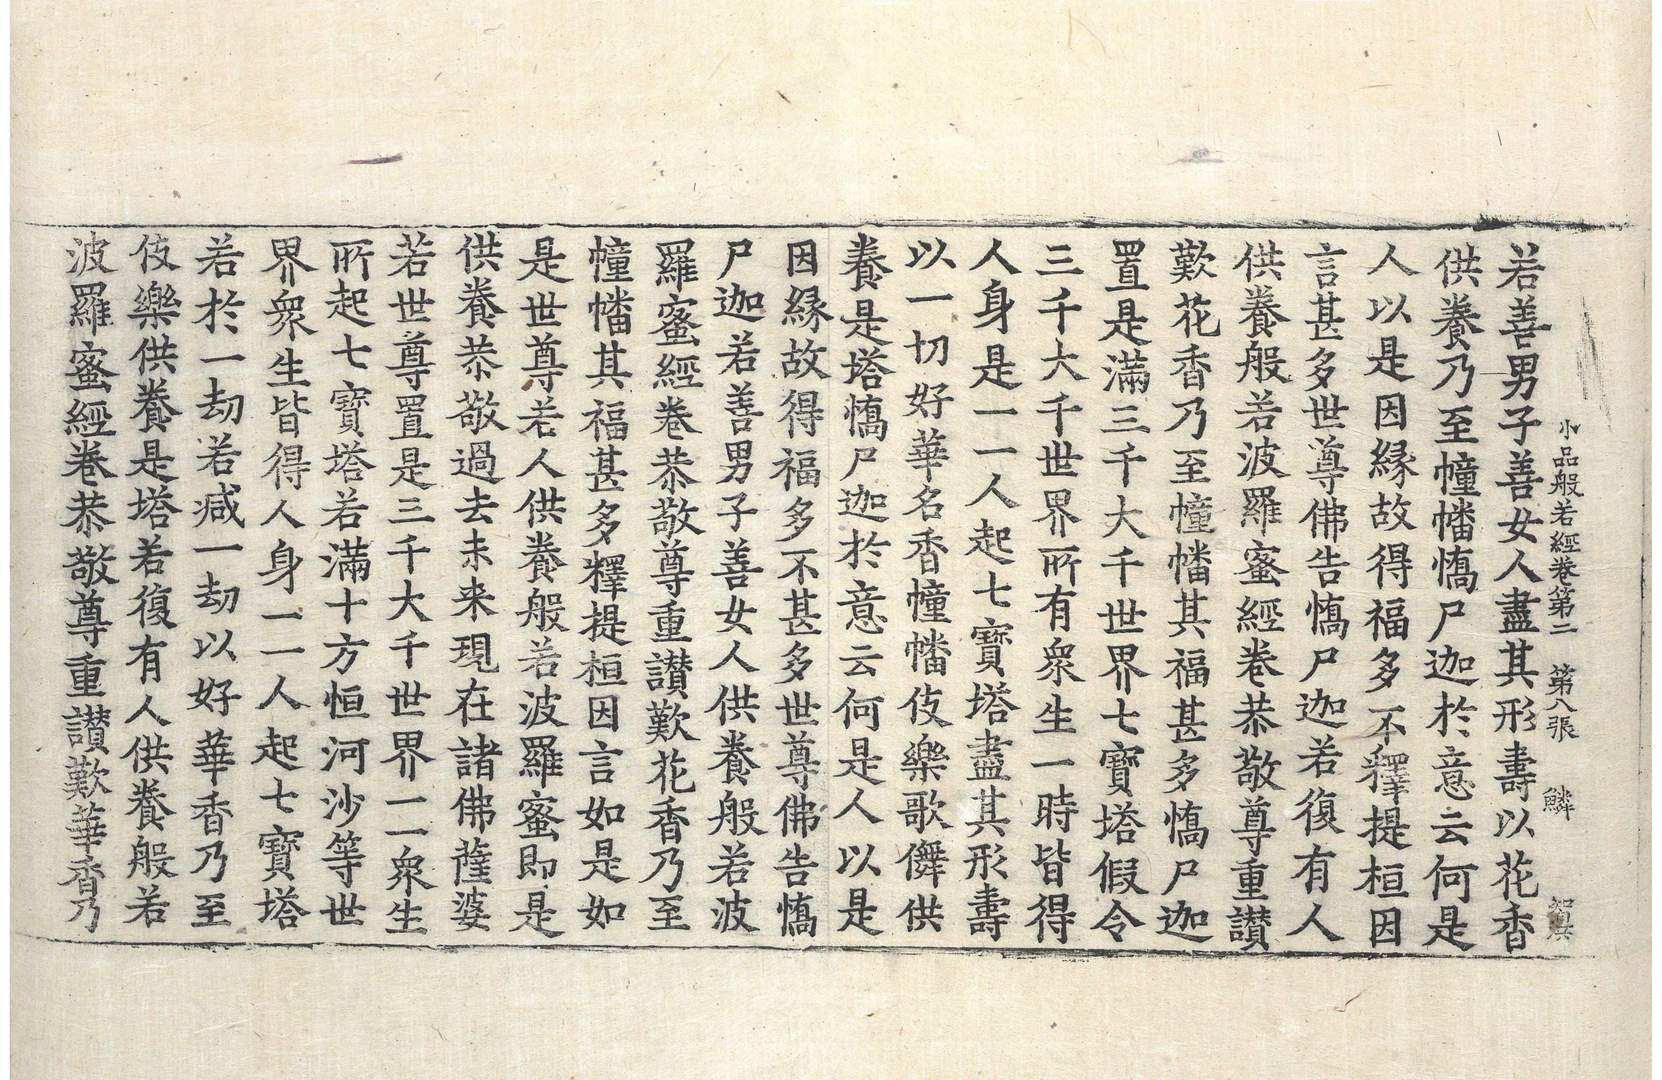 小品般若經卷第二 第八張 鱗
若善男子善女人盡其形壽以花香
供養乃至幢幡憍尸迦於意云何是
人以是因縁故得福多不釋提桓因
言甚多世尊佛告憍尸迦若復有人
供養般若波羅蜜經卷恭敬尊重讃
歎花香乃至幢幡其福甚多憍尸迦
置是滿三千大千世界七寶塔假令
三千大千世界所有衆生一時皆得
人身是一一人起七寶塔盡其形壽
以一切好華名香幢幡伎樂歌儛供
養是塔憍尸迦於意云何是人以是
因縁故得福多不甚多世尊佛告憍
尸迦若善男子善女人供養般若波
羅蜜經卷恭敬尊重讃歎花香乃至
幢幡其福甚多釋提桓因言如是如
是世尊若人供養般若波羅蜜即是
供養恭敬過去未来現在諸佛薩婆
若世尊置是三千大千世界一一衆生
所起七寶塔若滿十方恒河沙等世
界衆生皆得人身一一人起七寶塔
若於一劫若減一劫以好華香乃至
伎樂供養是塔若復有人供養般若
波羅蜜經卷恭敬尊重讃歎華香乃